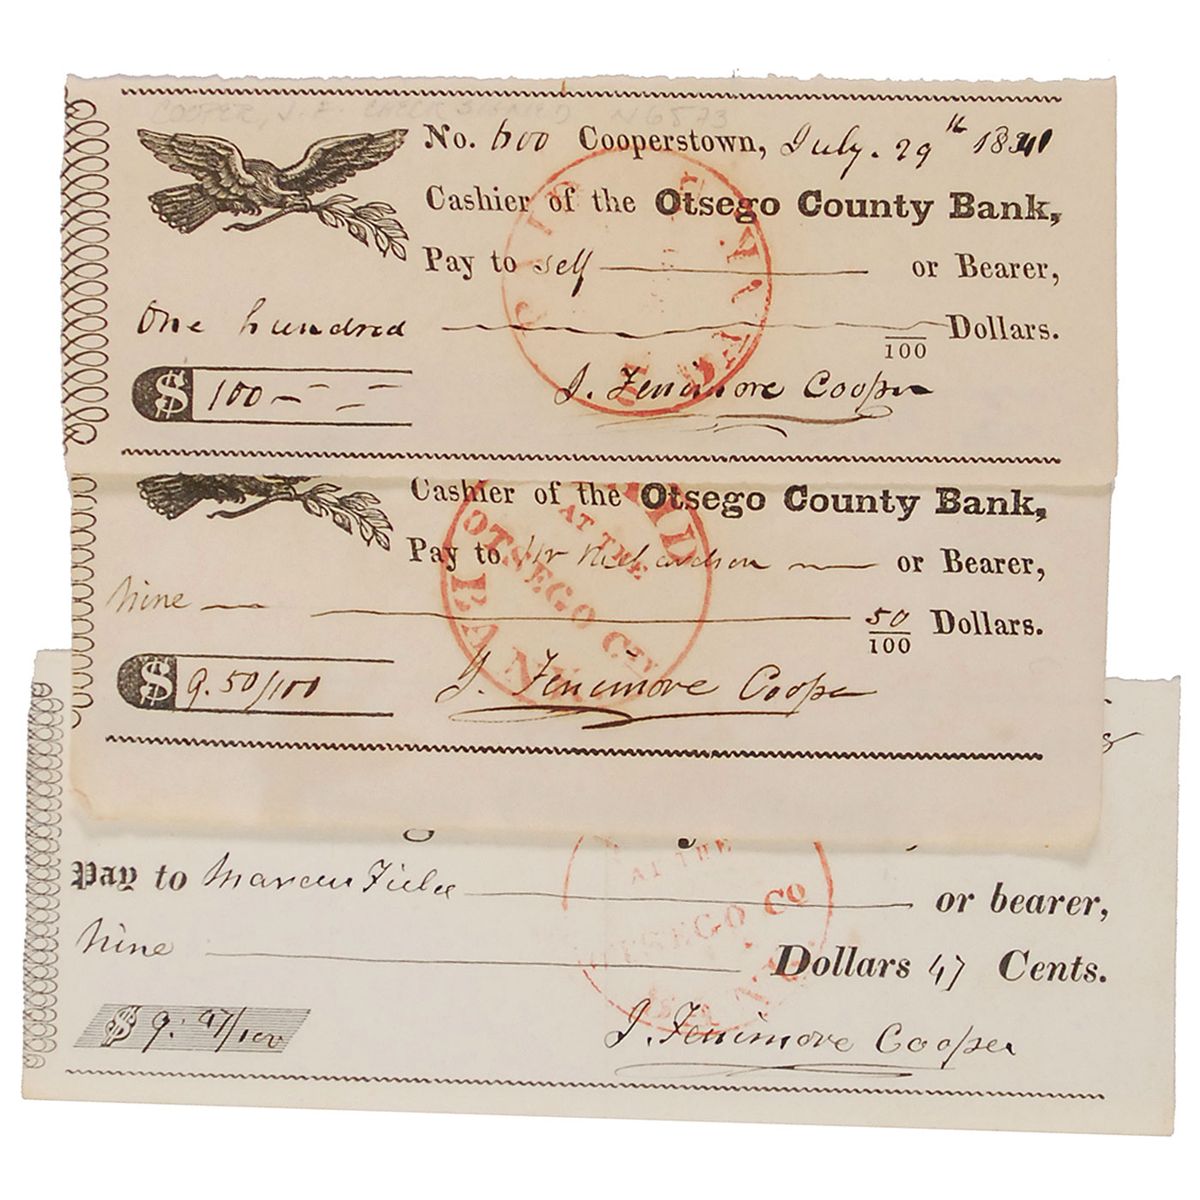 COOPER, J. F. CHECK SIGNED N6573
No. 600 Cooperstown, July. 29th 1841
Cashier of the Otsego County Bank,
Pay to self or Bearer,
One hundred /100 Dollars.
$ 100
J. Fenimore Cooper
Cashier of the Otsego County Bank,
Pay to Mr Richardson or Bearer,
Nine 50/100 Dollars.
$ 9.50/100
J. Fenimore Cooper
PAID
AT THE
OTSEGO CTY
BANK
Pay to Marcus Field or bearer,
Nine Dollars 47 Cents.
$ 9.47/100
J. Fenimore Cooper
AT THE
OTSEGO CO